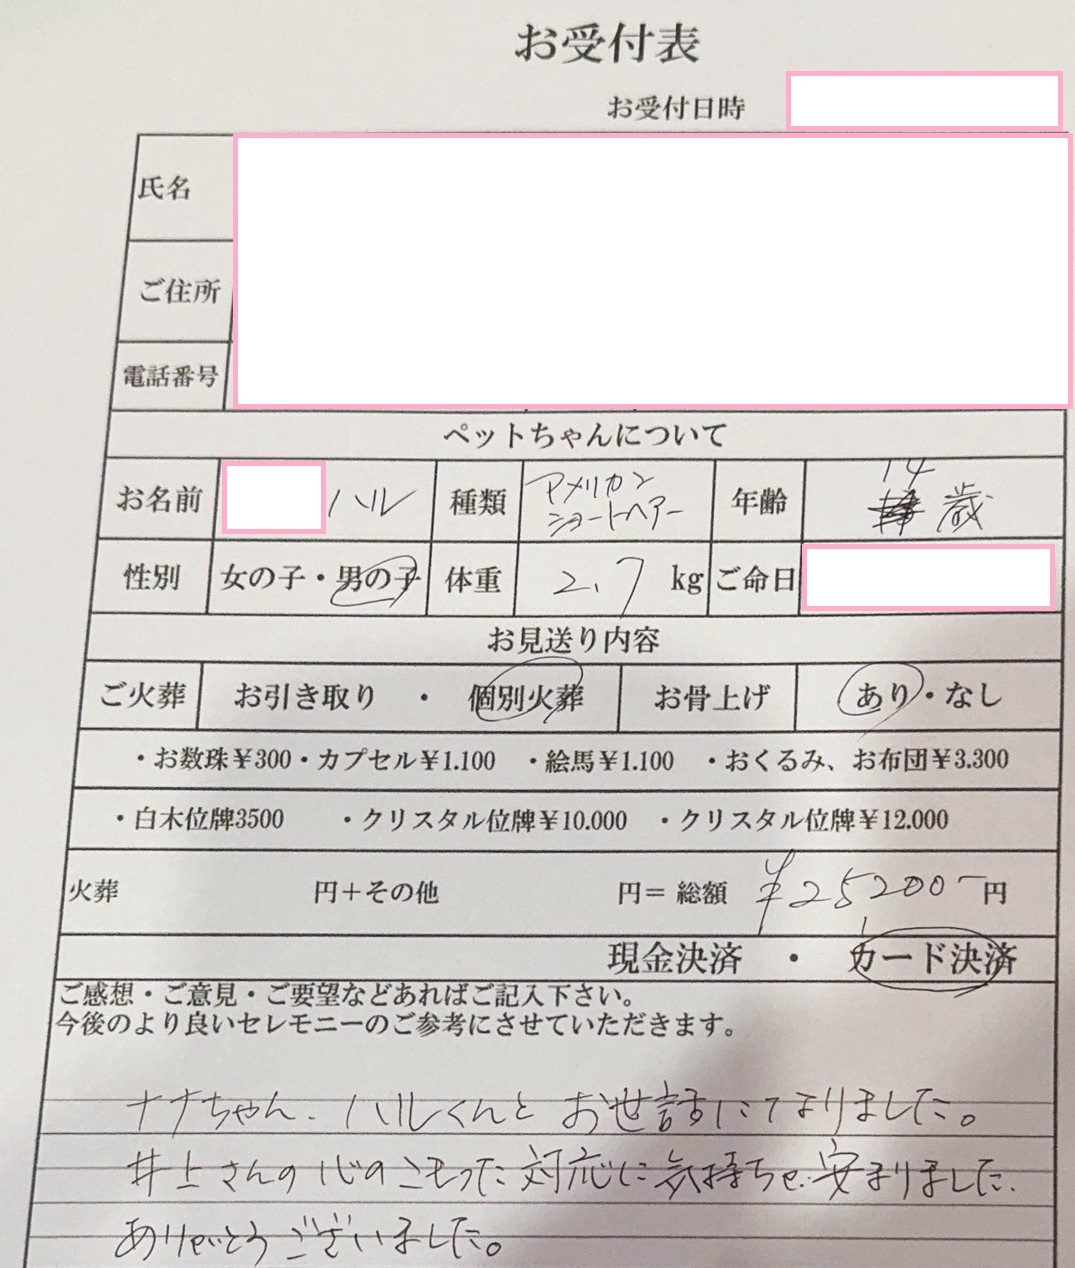 お受付表
お受付日時
氏名
ご住所
電話番号
ペットちゃんについて
お名前 ハル 種類 アメリカンショートヘアー 年齢 14歳
性別 女の子・男の子 体重 2.7 kg ご命日
お見送り内容
ご火葬 お引き取り ・ 個別火葬 お骨上げ あり・なし
・お数珠¥300・カプセル¥1.100 ・絵馬¥1.100 ・おくるみ、お布団¥3.300
・白木位牌3500 ・クリスタル位牌¥10.000 ・クリスタル位牌¥12.000
火葬 円+その他 円= 総額 ¥25,200-円
現金決済 ・ カード決済
ご感想・ご意見・ご要望などあればご記入下さい。
今後のより良いセレモニーのご参考にさせていただきます。
ナナちゃん、ハルくんと お世話になりました。
井上さんの心のこもった対応に気持ちが安まりました。
ありがとうございました。